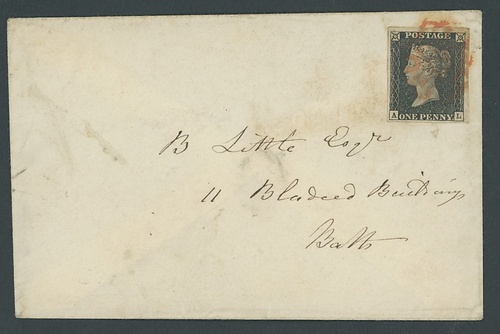 POSTAGE
A ONE PENNY L
B Little Esqr
11 Bladud Buildings
Bath